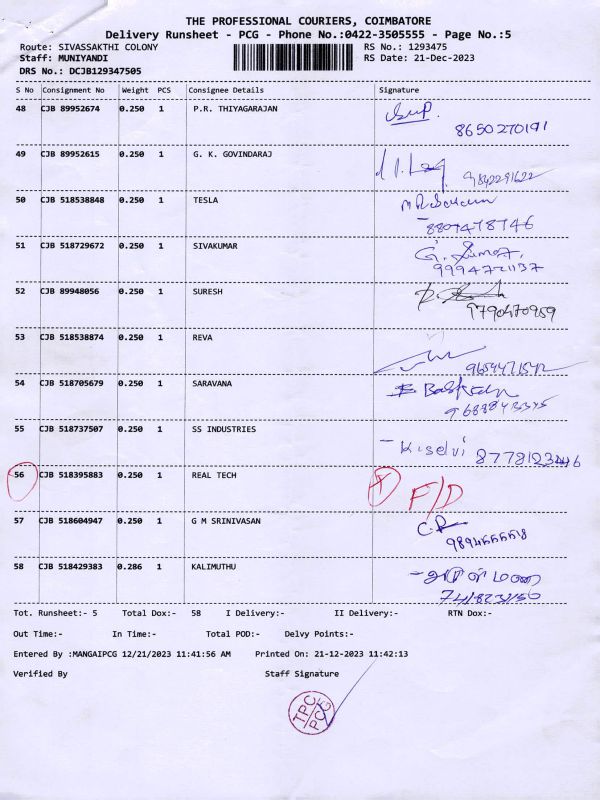 THE PROFESSIONAL COURIERS, COIMBATORE
Delivery Runsheet - PCG - Phone No.:0422-3505555 - Page No.:5
Route: SIVASSAKTHI COLONY RS No.: 1293475
Staff: MUNIYANDI RS Date: 21-Dec-2023
DRS No.: DCJB129347505
S No Consignment No Weight PCS Consignee Details Signature
48 CJB 89952674 0.250 1 P.R. THIYAGARAJAN
8650270191
49 CJB 89952615 0.250 1 G. K. GOVINDARAJ
9842291622
50 CJB 518538848 0.250 1 TESLA
8807478746
51 CJB 518729672 0.250 1 SIVAKUMAR
9994721137
52 CJB 89948056 0.250 1 SURESH
9790470959
53 CJB 518538874 0.250 1 REVA
54 CJB 518705679 0.250 1 SARAVANA
55 CJB 518737507 0.250 1 SS INDUSTRIES
K.selvi
56 CJB 518395883 0.250 1 REAL TECH
F/D
57 CJB 518604947 0.250 1 G M SRINIVASAN
58 CJB 518429383 0.286 1 KALIMUTHU
Tot. Runsheet:- 5 Total Dox:- 58 I Delivery:- II Delivery:- RTN Dox:-
Out Time:- In Time:- Total POD:- Delvy Points:-
Entered By :MANGAIPCG 12/21/2023 11:41:56 AM Printed On: 21-12-2023 11:42:13
Verified By Staff Signature
TPC
PCG